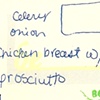 Celery
onion
chicken breast w/
prosciutto